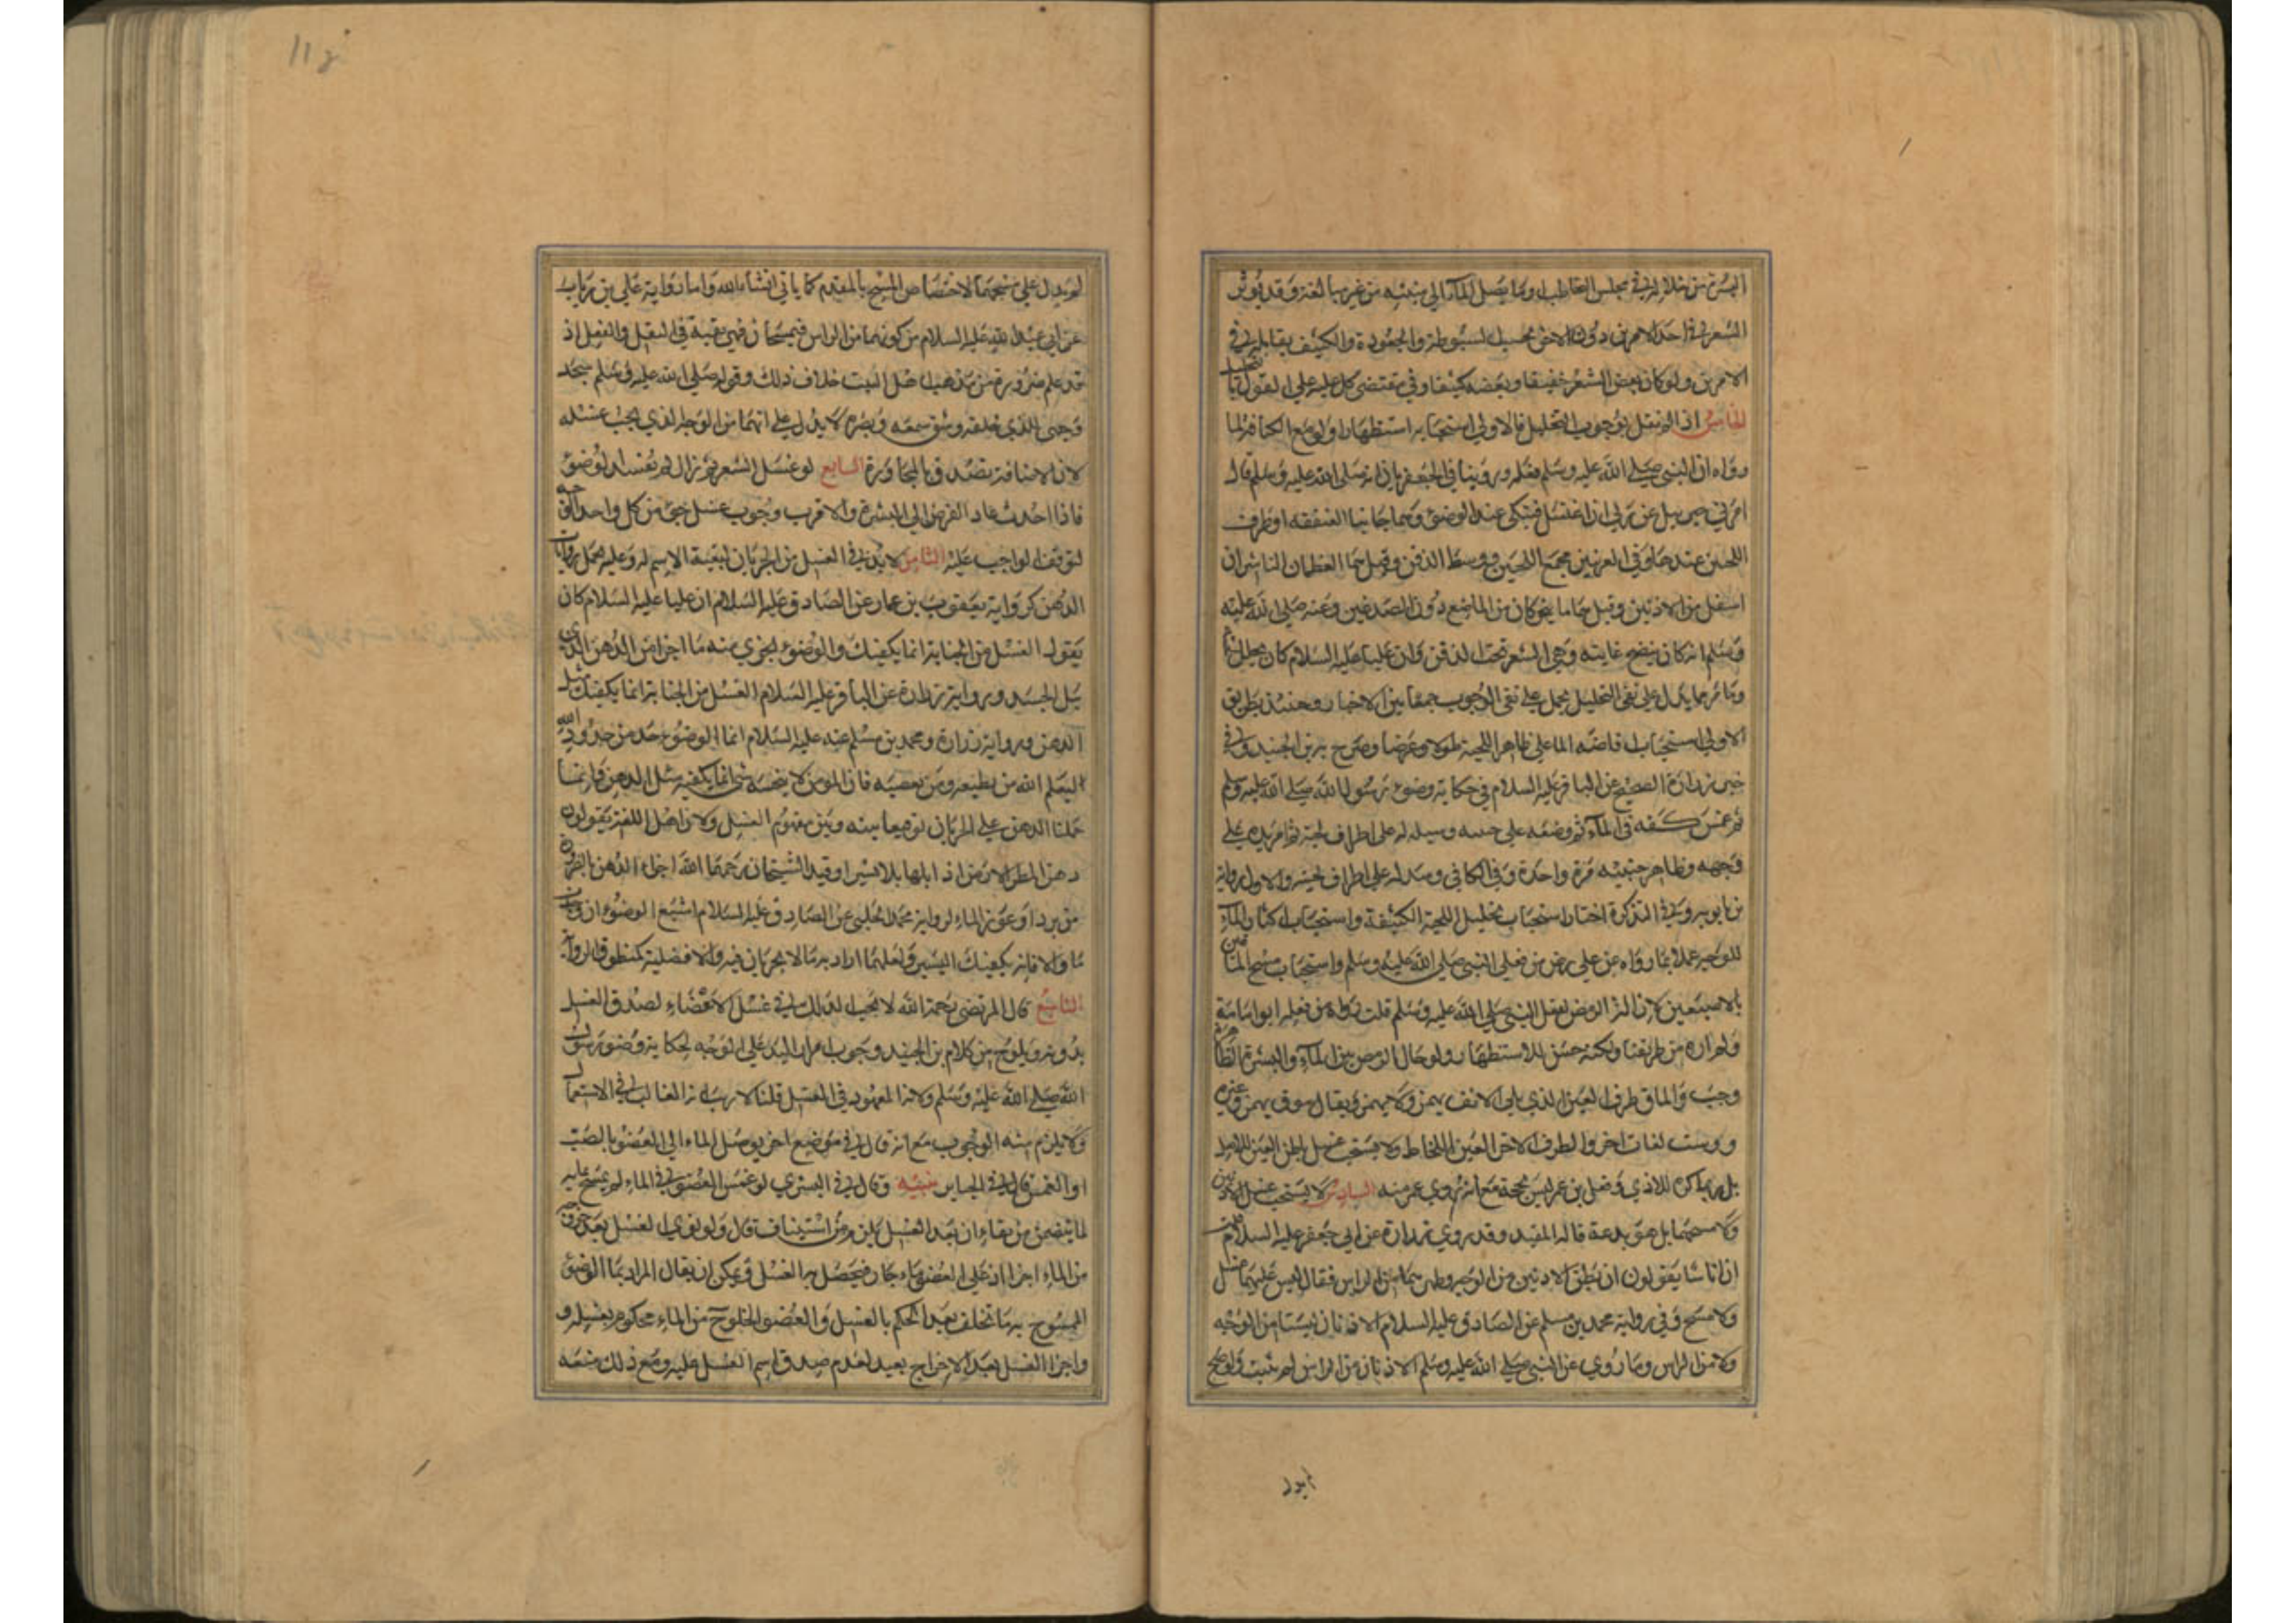 البشرة من خلاله في مجلس التخاطب او ما يصل الماء الى منبته من غير مبالغة وقد يؤثر
الشعر في احد الامرين دون الاخر بحسب السبوطة والجعودة والكثيف يقابله في
الامرين ولو كان بعض الشعر خفيفا وبعضه كثيفا وفى مقتضى كل عليه على القول بالتخليل
الخامس اذا لم نقل بوجوب التخليل فالاولى استحبابه استظهارا ولو مع الكثافة لما
رواه ان النبي صلى الله عليه وسلم فعله وروينا في الجعفريات انه صلى الله عليه وسلم قال
امرني جبرييل عن ربي ان اغسل فنيكي عند الوضوء وهما جانبا العنفقة او طرف
اللحيين عند العنفقة في مجمع اللحيين ووسط الذقن وقيل هما العظمان الناشزان
اسفل من الاذنين وقيل هما ما يتحركان من الماضغ دون الصدغين وعنه صلى الله عليه
وسلم انه كان ينضح غابته وهي الشعر تحت الذقن وان عليا عليه السلام كان يخلل لحيته
وما مر مما يدل على نفي التخليل يحمل على نفي الوجوب جمعا بين الاخبار وحينئذ بطريق
الاولى استحباب افاضة الماء على ظاهر اللحية طولا وعرضا وصرح به بن الجنيد وفي
خبر زرارة الصحيح عن الباقر عليه السلام في حكاية وضوء رسول الله صلى الله عليه وسلم
ثم غمس كفه في الماء ثم وضعه على جبينه وسيله على اطراف لحيته ثم امر يده على
وجهه وظاهر جبينيه مرة واحدة وفي الكافي وسدله على اطراف لحيته والاول رواية
بن بابويه وفي التذكرة اختار استحباب تخليل اللحية الكثيفة واستحباب اكثار الماء
للوجه عملا بما رواه عن علي رض من فعل النبي صلى الله عليه وسلم واستحباب مسح الماقين
بالاصبعين لازالة الرمص لفعل النبي صلى الله عليه وسلم قلت رواه من فعله ابو امامة
ولم اره من طريقنا ولكنه حسن للاستظهار ولو حال الرمص بين الماء والبشرة الظاهرة
وجب والماق طرف العين الذي يلي الانف يهمز ولا يهمز ويقال موق يهمز وغيره
وورست لغات اخر والطرف الاخر العين اللحاظ ولا يستحب غسل باطن العين للاصل
بل ربما كره للاذى وفعل بن عمر ليس بحجة مع انه روي عمى منه السادس لا يستحب غسل الاذنين
ولا مسحهما بل هو بدعة قاله المفيد وقد روى زرارة عن ابي جعفر عليه السلام
ان اناسا يقولون ان بطن الاذنين من الوجه وظهرهما من الراس فقال ليس عليهما غسل
ولا مسح وفي رواية محمد بن مسلم عن الصادق عليه السلام الاذنان ليستا من الوجه
ولا من الراس وما روي عن النبي صلى الله عليه وسلم الاذنان من الراس لم يثبت ولو صح
لم يدل على مسحهما لاختصاص المسح بالمقدم كما ياتي انشاء الله واما رواية علي بن رئاب
عن ابي عبد الله عليه السلام من كونهما من الراس فيمسحان فهي تقية في النقل والفعل اذ
قد علم ضرورة من مذهب اهل البيت خلاف ذلك وقوله صلى الله عليه وسلم سجد
وجهي للذي خلقه وشق سمعه وبصره لا يدل على انهما من الوجه الذي يجب غسله
لان الاضافة تصدق بالمجاورة السابع لو غسل الشعر ثم زال لم يفسد الوضوء
فاذا احدث عاد الفرض الى البشرة والاقرب وجوب غسل جزء من كل واحد
لتوقف الواجب عليه الثامن لا بد في الغسل من الجريان لتبعية الاسم له وعليه تحمل روايات
الدهن كرواية يعقوب بن عمار عن الصادق عليه السلام ان عليا عليه السلام كان
يقول الغسل من الجنابة انما يكفيك والوضوء يجزي منه ما اجزا من الدهن الذي
يبل الجسد ورواية زرارة عن الباقر عليه السلام الغسل من الجنابة انما يكفيك مثل
الدهن ورواية زرارة ومحمد بن مسلم عنه عليه السلام انما الوضوء حد من حدود الله
ليعلم الله من يطيعه ومن يعصيه فان المومن لا ينجسه شي انما يكفيه مثل الدهن وانما
حملنا الدهن على الجريان توفيقا بينه وبين مفهوم الغسل ولان اهل اللغة يقولون
دهن المطر الارض اذا بلها بلا يسيرا وقيد الشيخان رحمهما الله اجزاء الدهن بالضرورة
من برد او عوز الماء لرواية محمد الحلبي عن الصادق عليه السلام اسبغ الوضوء ان وجدت
ماء والا فانه يكفيك اليسير ولعلهما ارادا به ما لا يجريان فيه والافضلية كمنطوق الرواية
التاسع قال المرتضى رحمه الله لا يجب الدلك في غسل الاعضاء لصدق الغسل
بدونه ويلوح من كلام بن الجنيد وجوب امرار اليد على الوجه لحكاية وضوء رسول
الله صلى الله عليه وسلم ولانه المعهود في الغسل قلنا لا ريب انه الغالب في الاستعمال
ولا يلزم منه الوجوب مع انه قال في موضع اخر يوصل الماء الى العضو بالصب
او الغمس قال في الجباير منبه وقال في البشرى لو غمس العضو في الماء لم يمسح عليه
لما يتضمن من بقاء ان بعد الغسل يلزم منه استيناف قال ولو نوى الغسل بعد خروجه
من الماء اجزا اذ على العضو ماء جار فيحصل به الغسل ويمكن ان يقال المراد بماء الوضوء
الممسوح به ما تخلف بعد الحكم بالغسل والعضو الخارج من الماء محكوم بغسله و
واجزاء الغسل بعد الاخراج بعيد لعدم صدق اسم الغسل عليه ومع ذلك منعه
لم يدل